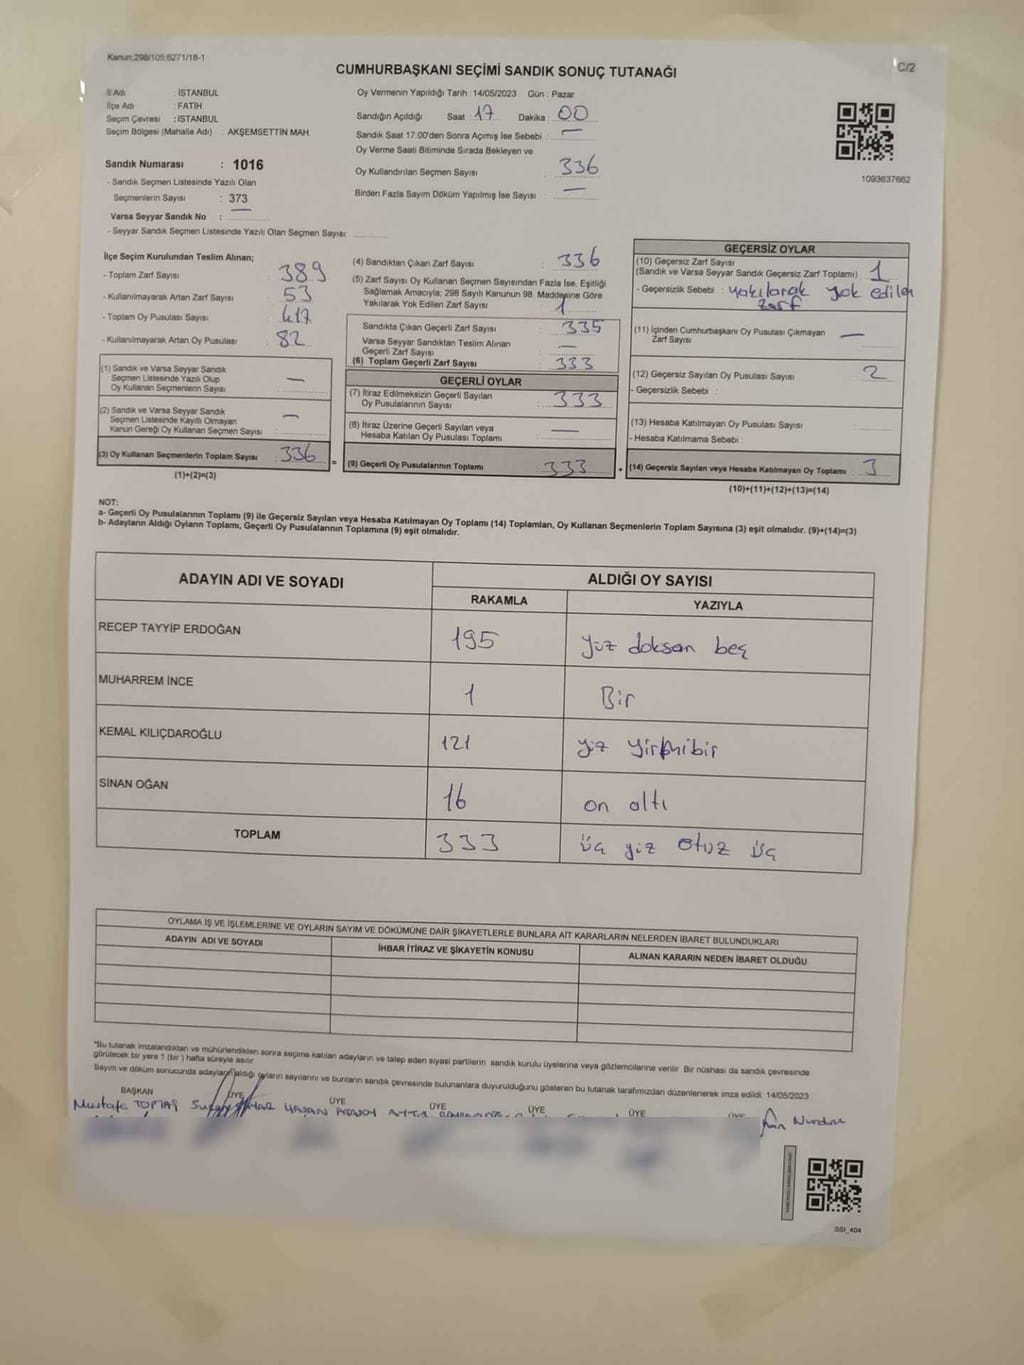 Kanun:298/105;6271/18-1
C/2
CUMHURBAŞKANI SEÇİMİ SANDIK SONUÇ TUTANAĞI
İl Adı : İSTANBUL
İlçe Adı : FATİH
Seçim Çevresi : İSTANBUL
Seçim Bölgesi (Mahalle Adı) : AKŞEMSETTİN MAH.
Sandık Numarası : 1016
- Sandık Seçmen Listesinde Yazılı Olan
Seçmenlerin Sayısı : 373
Varsa Seyyar Sandık No : —
- Seyyar Sandık Seçmen Listesinde Yazılı Olan Seçmen Sayısı:
Oy Vermenin Yapıldığı Tarih : 14/05/2023 Gün : Pazar
Sandığın Açıldığı Saat : 17 Dakika : 00
Sandık Saat 17:00'den Sonra Açımış İse Sebebi : —
Oy Verme Saati Bitiminde Sırada Bekleyen ve
Oy Kullandırılan Seçmen Sayısı : 336
Birden Fazla Sayım Döküm Yapılmış İse Sayısı : —
1093637662
İlçe Seçim Kurulundan Teslim Alınan;
- Toplam Zarf Sayısı : 389
- Kullanılmayarak Artan Zarf Sayısı : 53
- Toplam Oy Pusulası Sayısı : 417
- Kullanılmayarak Artan Oy Pusulası : 82
(1) Sandık ve Varsa Seyyar Sandık
Seçmen Listesinde Yazılı Olup
Oy Kullanan Seçmenlerin Sayısı : —
(2) Sandık ve Varsa Seyyar Sandık
Seçmen Listesinde Kayıtlı Olmayan
Kanun Gereği Oy Kullanan Seçmen Sayısı : —
(3) Oy Kullanan Seçmenlerin Toplam Sayısı : 336
(1)+(2)=(3)
=
(4) Sandıktan Çıkan Zarf Sayısı : 336
(5) Zarf Sayısı Oy Kullanan Seçmen Sayısından Fazla İse, Eşitliği
Sağlamak Amacıyla; 298 Sayılı Kanunun 98. Maddesine Göre
Yakılarak Yok Edilen Zarf Sayısı : 1
Sandıkta Çıkan Geçerli Zarf Sayısı : 335
Varsa Seyyar Sandıktan Teslim Alınan
Geçerli Zarf Sayısı : —
(6) Toplam Geçerli Zarf Sayısı : 333
GEÇERLİ OYLAR
(7) İtiraz Edilmeksizin Geçerli Sayılan
Oy Pusulalarının Sayısı : 333
(8) İtiraz Üzerine Geçerli Sayılan veya
Hesaba Katılan Oy Pusulası Toplamı : —
(9) Geçerli Oy Pusulalarının Toplamı : 333
+
GEÇERSİZ OYLAR
(10) Geçersiz Zarf Sayısı
(Sandık ve Varsa Seyyar Sandık Geçersiz Zarf Toplamı) : 1
- Geçersizlik Sebebi : yakılarak yok edilen
zarf
(11) İçinden Cumhurbaşkanı Oy Pusulası Çıkmayan
Zarf Sayısı : —
(12) Geçersiz Sayılan Oy Pusulası Sayısı : 2
- Geçersizlik Sebebi :
(13) Hesaba Katılmayan Oy Pusulası Sayısı :
- Hesaba Katılmama Sebebi :
(14) Geçersiz Sayılan veya Hesaba Katılmayan Oy Toplamı : 3
(10)+(11)+(12)+(13)=(14)
NOT:
a- Geçerli Oy Pusulalarının Toplamı (9) ile Geçersiz Sayılan veya Hesaba Katılmayan Oy Toplamı (14) Toplamları, Oy Kullanan Seçmenlerin Toplam Sayısına (3) eşit olmalıdır. (9)+(14)=(3)
b- Adayların Aldığı Oyların Toplamı, Geçerli Oy Pusulalarının Toplamına (9) eşit olmalıdır.
ADAYIN ADI VE SOYADI
ALDIĞI OY SAYISI
RAKAMLA YAZIYLA
RECEP TAYYİP ERDOĞAN 195 yüz doksan beş
MUHARREM İNCE 1 Bir
KEMAL KILIÇDAROĞLU 121 yüz yirmibir
SİNAN OĞAN 16 on altı
TOPLAM 333 üç yüz otuz üç
OYLAMA İŞ VE İŞLEMLERİNE VE OYLARIN SAYIM VE DÖKÜMÜNE DAİR ŞİKAYETLERLE BUNLARA AİT KARARLARIN NELERDEN İBARET BULUNDUKLARI
ADAYIN ADI VE SOYADI İHBAR İTİRAZ VE ŞİKAYETİN KONUSU ALINAN KARARIN NEDEN İBARET OLDUĞU
*Bu tutanak imzalandıktan ve mühürlendikten sonra seçime katılan adayların ve talep eden siyasi partilerin sandık kurulu üyelerine veya gözlemcilerine verilir. Bir nüshası da sandık çevresinde
görülecek bir yere 1 (bir) hafta süreyle asılır.
Sayım ve döküm sonucunda adayların aldığı oyların sayılarını ve bunların sandık çevresinde bulunanlara duyurulduğunu gösteren bu tutanak tarafımızdan düzenlenerek imza edildi. 14/05/2023
BAŞKAN ÜYE ÜYE ÜYE ÜYE ÜYE
Mustafa TOPTAŞ
SSI_404